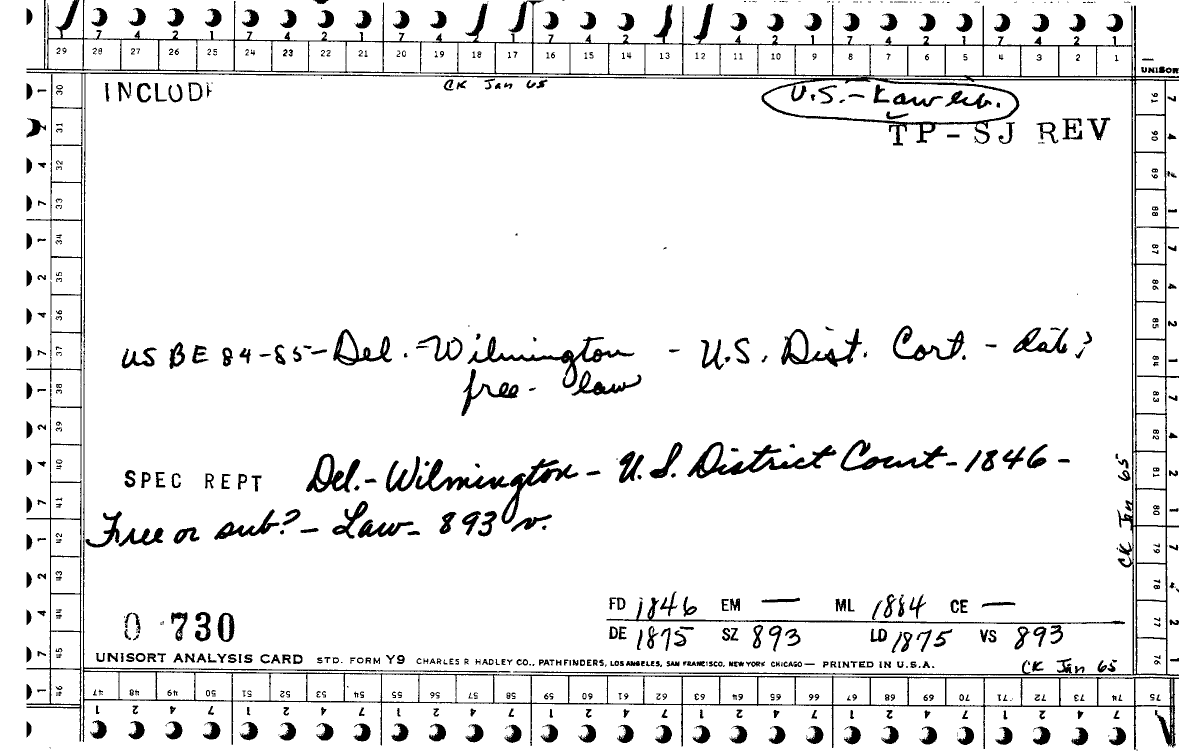 7 4 2 1 7 4 2 1 7 4 2 1 7 4 2 1 7 4 2 1 7 4 2 1
29 28 27 26 25 24 23 22 21 20 19 18 17 16 15 14 13 12 11 10 9 8 7 6 5 4 3 2 1
UNISORT
INCLUDE
CK Jan 65
U.S. - Law lib.
TP-SJ REV
US BE 84-85-Del.-Wilmington - U.S. Dist. Cort. - date?
free - law
SPEC REPT Del.-Wilmington - U.S. District Court-1846-
Free or sub? - Law - 893 v.
CK Jan 65
0 730
FD 1846 EM — ML 1884 CE —
DE 1875 SZ 893 LD 1875 VS 893
UNISORT ANALYSIS CARD STD. FORM Y9 CHARLES R HADLEY CO., PATHFINDERS, LOS ANGELES, SAN FRANCISCO, NEW YORK CHICAGO — PRINTED IN U.S.A.
CK Jan 65
30 31 32 33 34 35 36 37 38 39 40 41 42 43 44 45 46
91 90 89 88 87 86 85 84 83 82 81 80 79 78 77 76
47 48 49 50 51 52 53 54 55 56 57 58 59 60 61 62 63 64 65 66 67 68 69 70 71 72 73 74 75